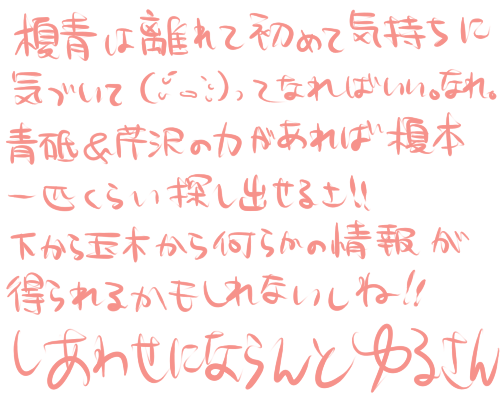 榎青は離れて初めて気持ちに
気づいて(ﾟ･ﾟ)ってなればいい。なれ。
青砥&芹沢の力があれば榎本
一匹くらい探し出せるさ!!
下から玉木から何らかの情報が
得られるかもしれないしね!!
しあわせにならんとゆるさん